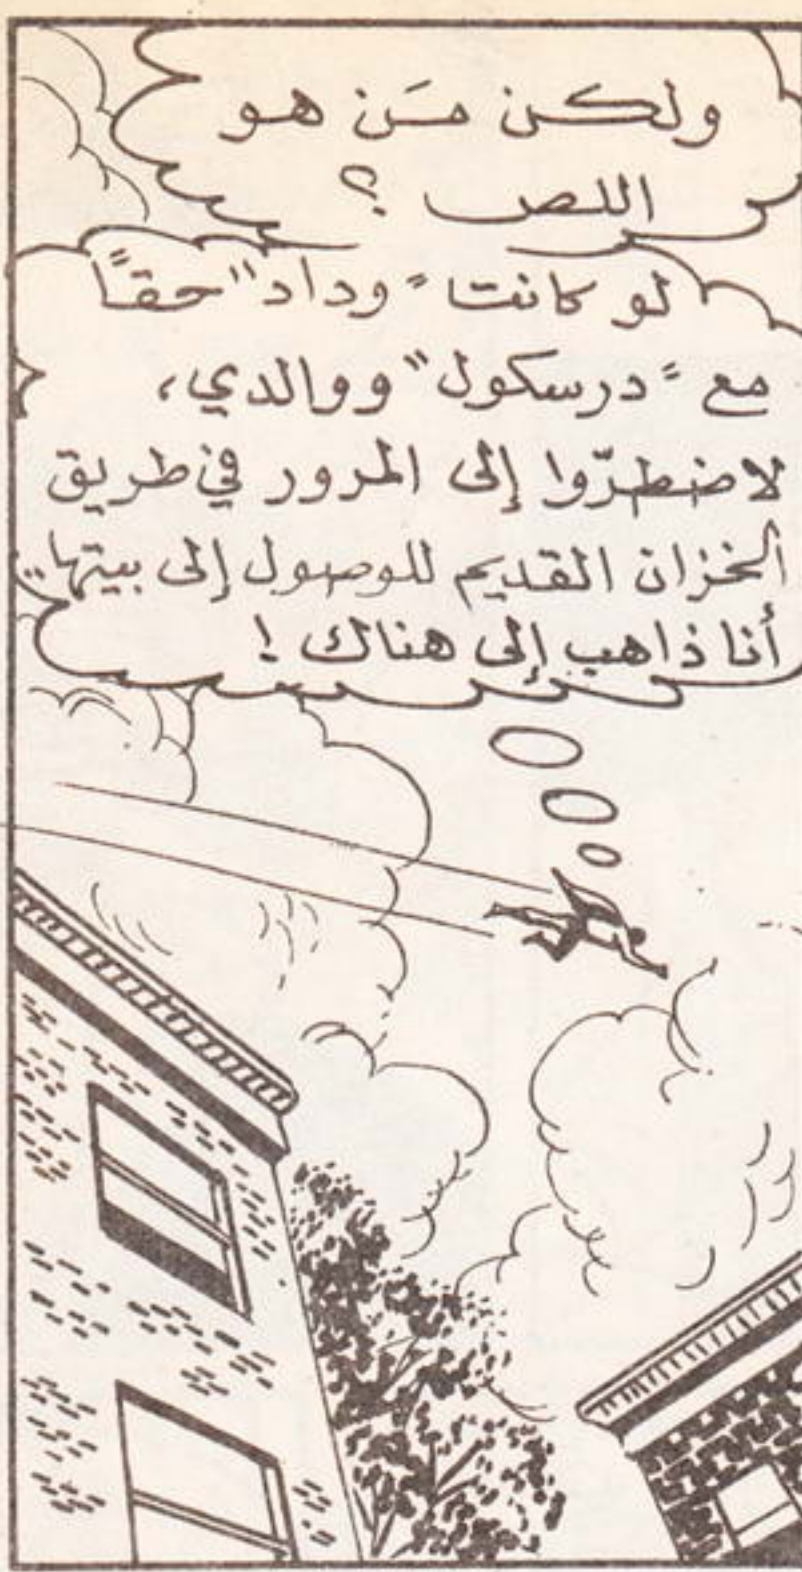 ولكن مَن هو
اللص ؟
لو كانت "وداد" حقاً
مع "درسكول" ووالدي،
لاضطرّوا إلى المرور في طريق
الخزان القديم للوصول إلى بيتها..
أنا ذاهب إلى هناك !